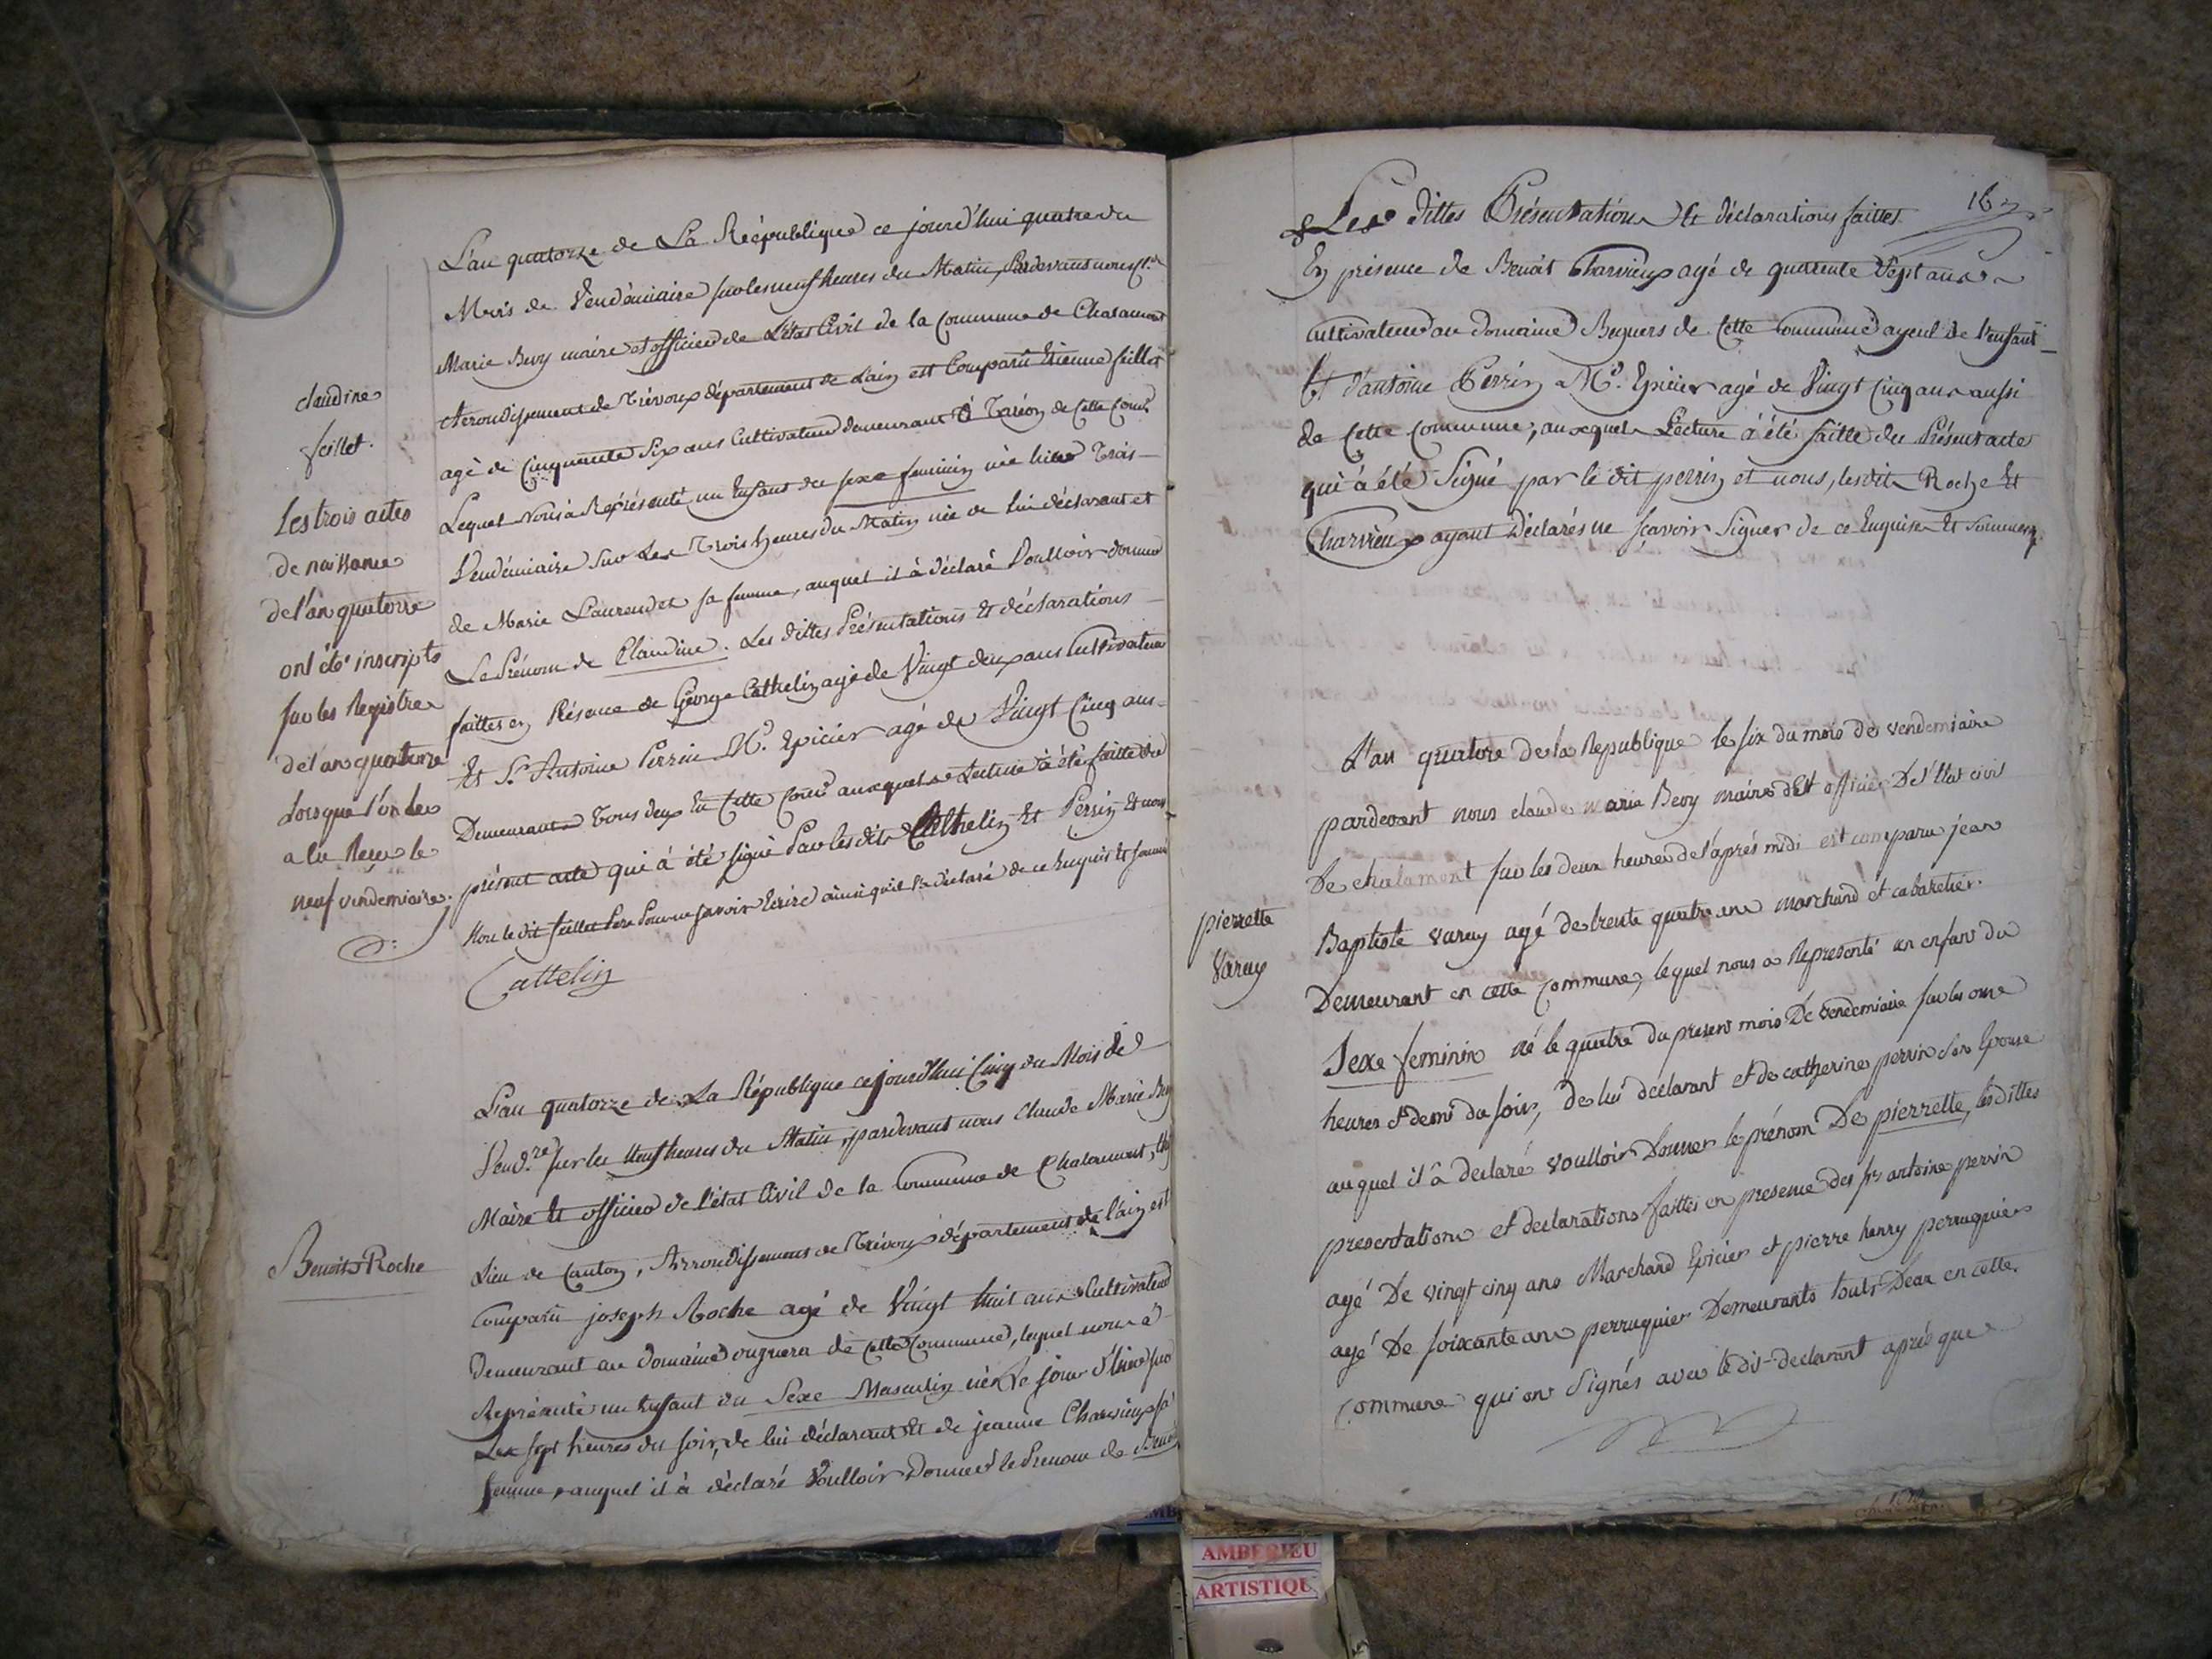 L'an quatorze de La République ce jourd'hui quatre du
Mois de Vendémiaire sur les neuf heures du Matin, Pardevant nous Cl.de
Marie Bevy maire et officier de L'état Civil de la Commune de Chalamont
Arrondissement de Trévoux département de Lain est Comparû Etienne feillet
agé de Cinquante Six ans Cultivateur demeurant à de Cette Comne
Lequel Nous à Réprésenté un Enfant du sexe feminin née hier Trois
Vendémiaire Sur Les Trois heures du Matin née de lui déclarant et
de Marie Laurendet sa femme, auquel il à déclaré Voulloir donner
Le Prénom de Claudine. Les dittes Présentations Et déclarations
faittes en Présence de George Cathelin agé de Vingt deux ans Cultivateur
Et Sr. Antoine Perrin Md. Epicier agé de Vingt Cinq ans
Demeurants Tous deux En Cette Comne auxquels Lecture à été faitte du
présent acte qui à été signé Par les dits Cathelin Et Perrin Et nous
Non le dit feillet Pere Pour ne savoir Ecrire ainsi qu'il l'a déclaré de ce Enquis Et sommé
Cattelin
claudine
feillet.
Les trois actes
de naissance
de l'an quatorze
ont été inscripts
sur les Registres
de l'an quatorze
Lorsque l'on les
a lu Reçu le
neuf vendemiaire.
L'an quatorze de La République ce jourd'hui Cinq du Mois de
Vend.re sur les Neuf heures du Matin, pardevant nous Claude Marie Bevy
Maire Et officier de l'état Civil de la Commune de Chalamont, Ch
Lieu de Canton, Arrondissement de Trévoux département de l'ain est
Comparû joseph Roche agé de Vingt huit ans Cultivateur
Demeurant au Domaine de Cette Commune, lequel nous à
Réprésenté un Enfant du Sexe Masculin né Le jour d'hier sur
Les sept heures du soir, de lui déclarant Et de jeanne Charvieux sa
femme, auquel il à déclaré Voulloir Donner le Prenom de Benoit
Benoit Roche
16
Les dittes Présentations Et déclarations faittes
En présence de Benoit Charvieux agé de quarente Sept ans
Cultivateur au Domaine de Cette Commune ayeul de l'enfant
Et d'antoine Perrin Md. Epicier agé de Vingt Cinq ans aussi
de Cette Commune, auxquels Lecture à été faitte du Présent acte
qui à été Signé par le dit perrin et nous, les dits Roche Et
Charvieux ayant Déclarés ne sçavoir Signer de ce Enquis Et Sommés
L'an quatorze de la Republique le six du mois de vendemiaire
pardevant nous claude marie Bevy maire Et officier De l'Etat civil
De chalamont sur les deux heures de l'aprés midi est comparu jean
Baptiste varuy agé de trente quatre ans marchand et cabaretier
Demeurant en cette Commune, lequel nous a Representé un enfant du
Sexe feminin né le quatre du present mois De vendemiaire sur les onze
heures Et demi du soir, de lui déclarant et de catherine perrin son Epouse
auquel il à declaré voulloir Donner le prénom De pierrette, les dittes
presentations et declarations faittes en presence des srs antoine perrin
agé De vingt cinq ans Marchand Epicier et pierre henry perruquier
agé De soixante ans perruquier Demeurants touts Deux en cette
Commune qui ont Signés avec le dit declarant aprés que
pierrette
varuy
AMBERIEU
ARTISTIQU